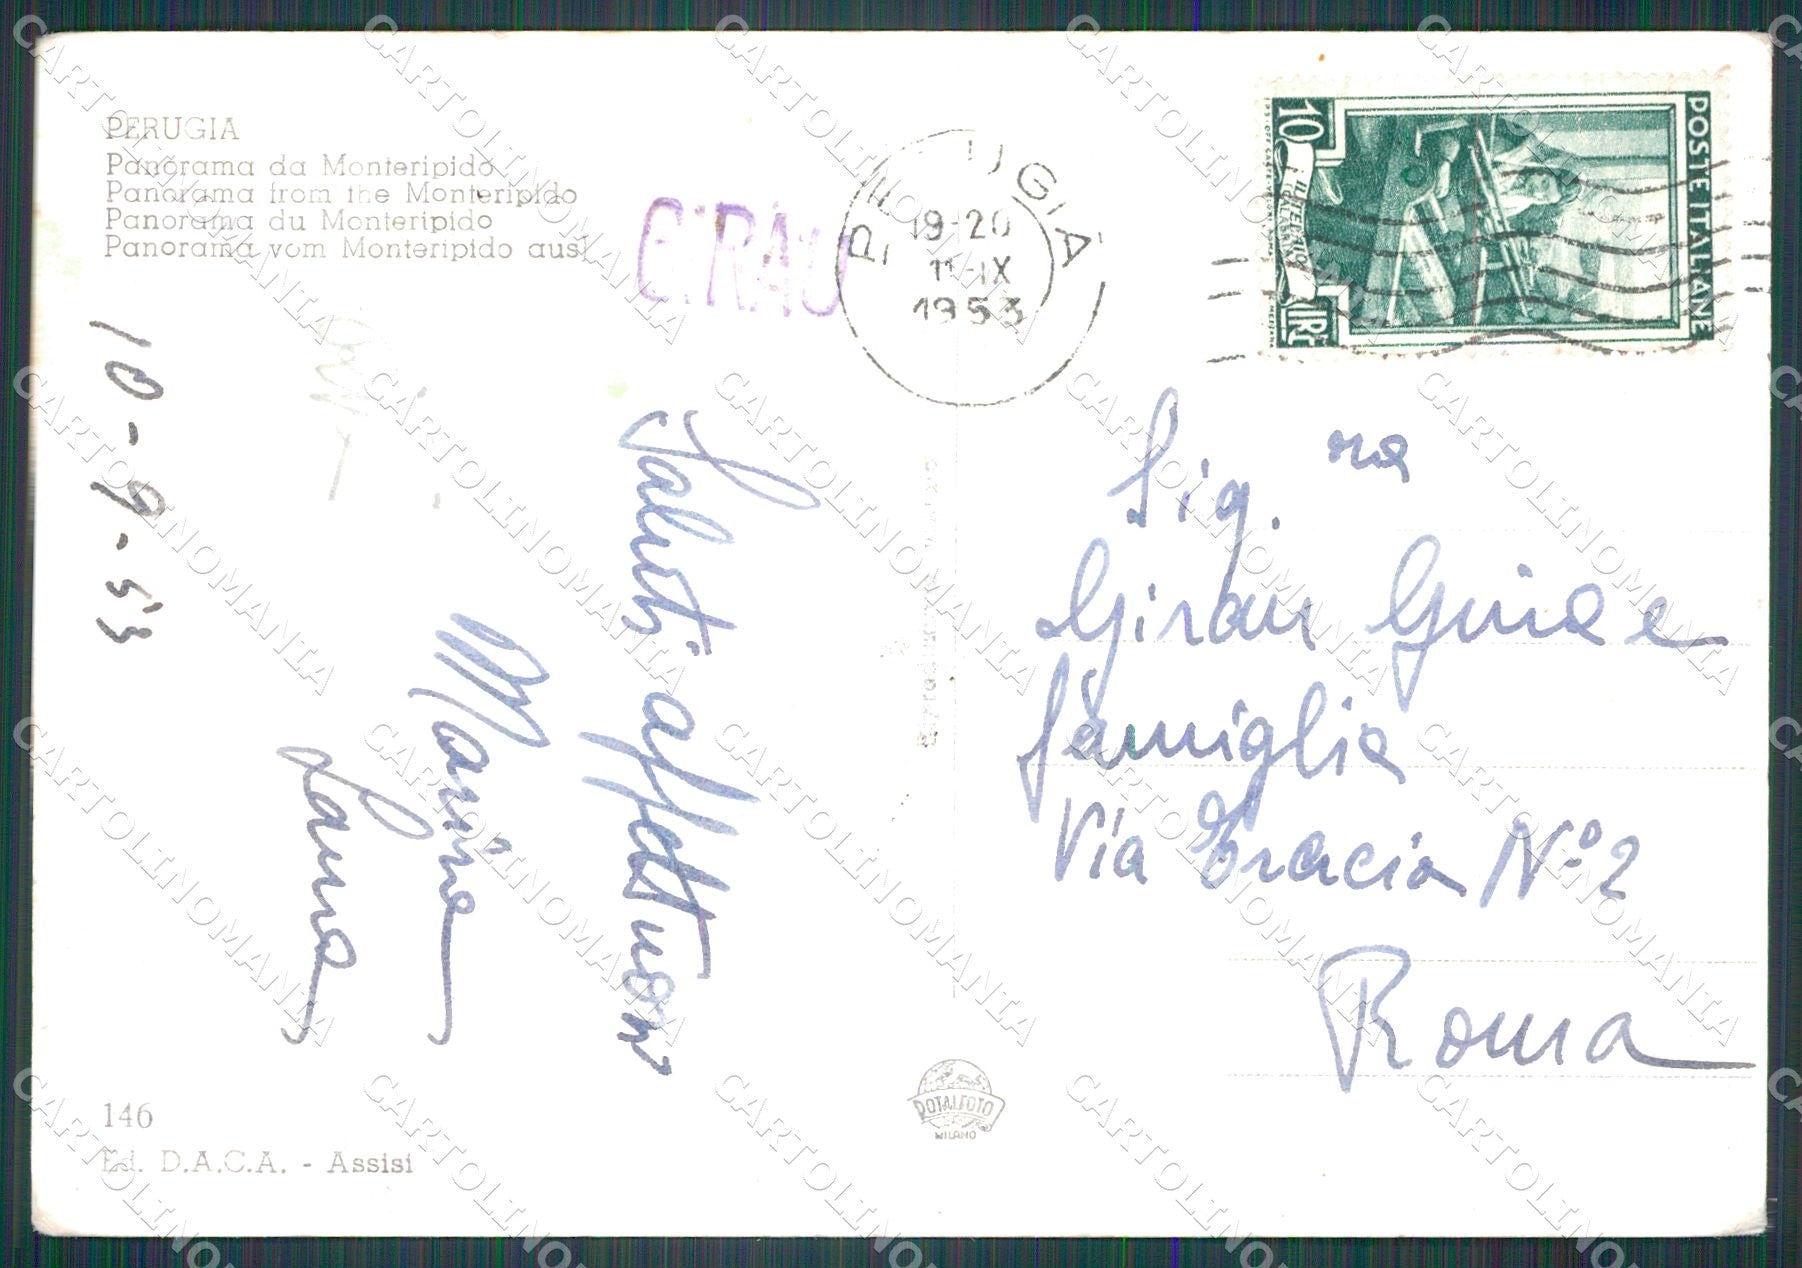 PERUGIA
Panorama da Monteripido
Panorama from the Monteripido
Panorama du Monteripido
Panorama vom Monteripido aus
10-9-53
Saluti affettuosi
Marina
Sig.na
Girau Guia e
famiglia
Via Tracia N.º 2
Roma
GIRAU
PERUGIA
19-20
11-IX
1953
POSTE ITALIANE
10
LIRE
146
Ed. D.A.C.A. - Assisi
ROTALFOTO
MILANO
CARTOLINOMANIA